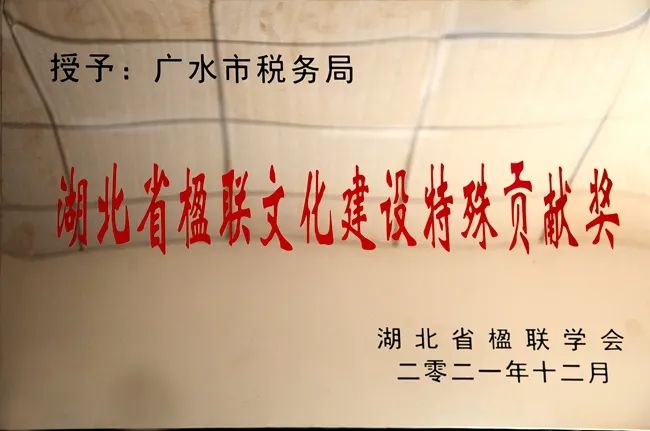 授予：广水市税务局
湖北省楹联文化建设特殊贡献奖
湖北省楹联学会
二零二一年十二月